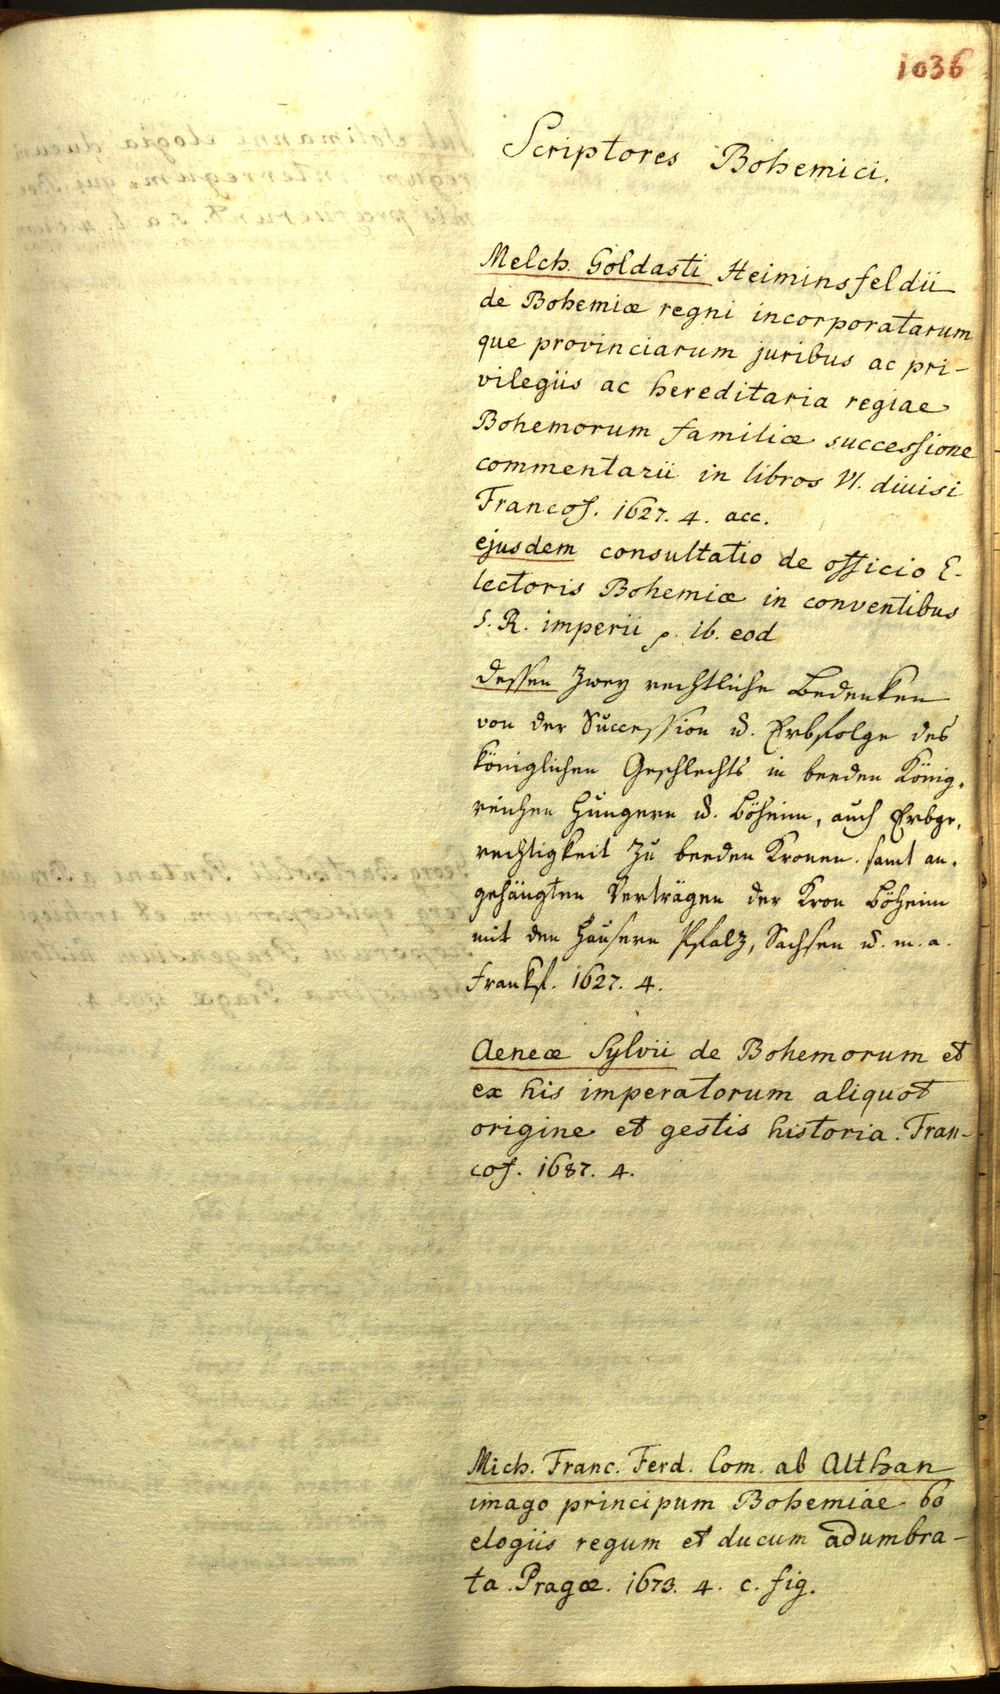 1036
Scriptores Bohemici.
Melch. Goldasti Heiminsfeldii
de Bohemiæ regni incorporatarum
que provinciarum juribus ac pri-
vilegiis ac hereditaria regiae
Bohemorum familiæ successione
commentarii in libros VI. divisi
Francof. 1627. 4. acc.
ejusdem consultatio de officio E-
lectoris Bohemiæ in conventibus
S. R. imperii p. ib. eod
dessen zwey rechtliche Bedenken
von der Succession u. Erbfolge des
königlichen Geschlechts in beeden König-
reichen Hungern u. Böheim, auch Erbge-
rechtigkeit zu beeden Kronen. samt an-
gehängten Verträgen der Kron Böheim
mit den Häusern Pfalz, Sachsen u. m. a.
Frankf. 1627. 4.
Aeneæ Sylvii de Bohemorum et
ex his imperatorum aliquot
origine et gestis historia. Fran-
cof. 1687. 4.
Mich. Franc. Ferd. Com. ab Althan
imago principum Bohemiae 60
elogiis regum et ducum adumbra-
ta. Pragæ. 1673. 4. c. fig.